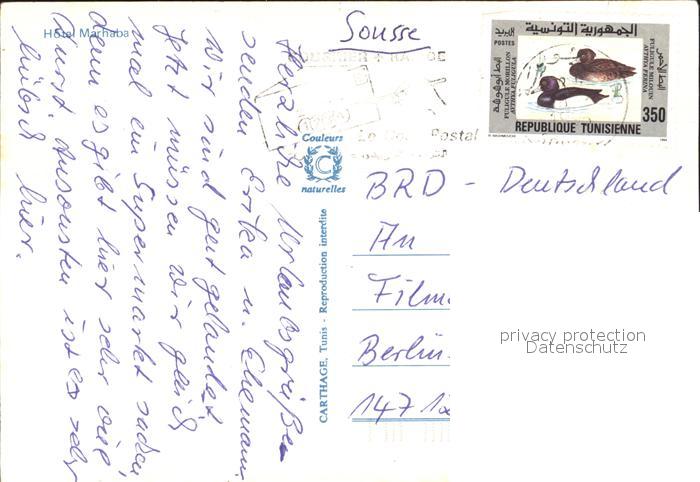 Hôtel Marhaba
Sousse
Herzliche Urlaubsgrüße
senden Erika u. Ehemann
Wir sind gut gelandet
jetzt müssen wir gleich
mal ein Supermarkt suchen
denn es gibt hier sehr viel
Durst. Ansonsten ist es sehr
hübsch hier.
Couleurs
C
naturelles
CARTHAGE, Tunis - Reproduction interdite
Le Code Postal
الجمهورية التونسية
البريد
POSTES
FULIGULE MORILLON
AYTHYA FULIGULA
FULIGULE MILOUIN
AYTHYA FERINA
350
REPUBLIQUE TUNISIENNE
BRD - Deutschland
An
Film
Berlin
147 1
privacy protection
Datenschutz